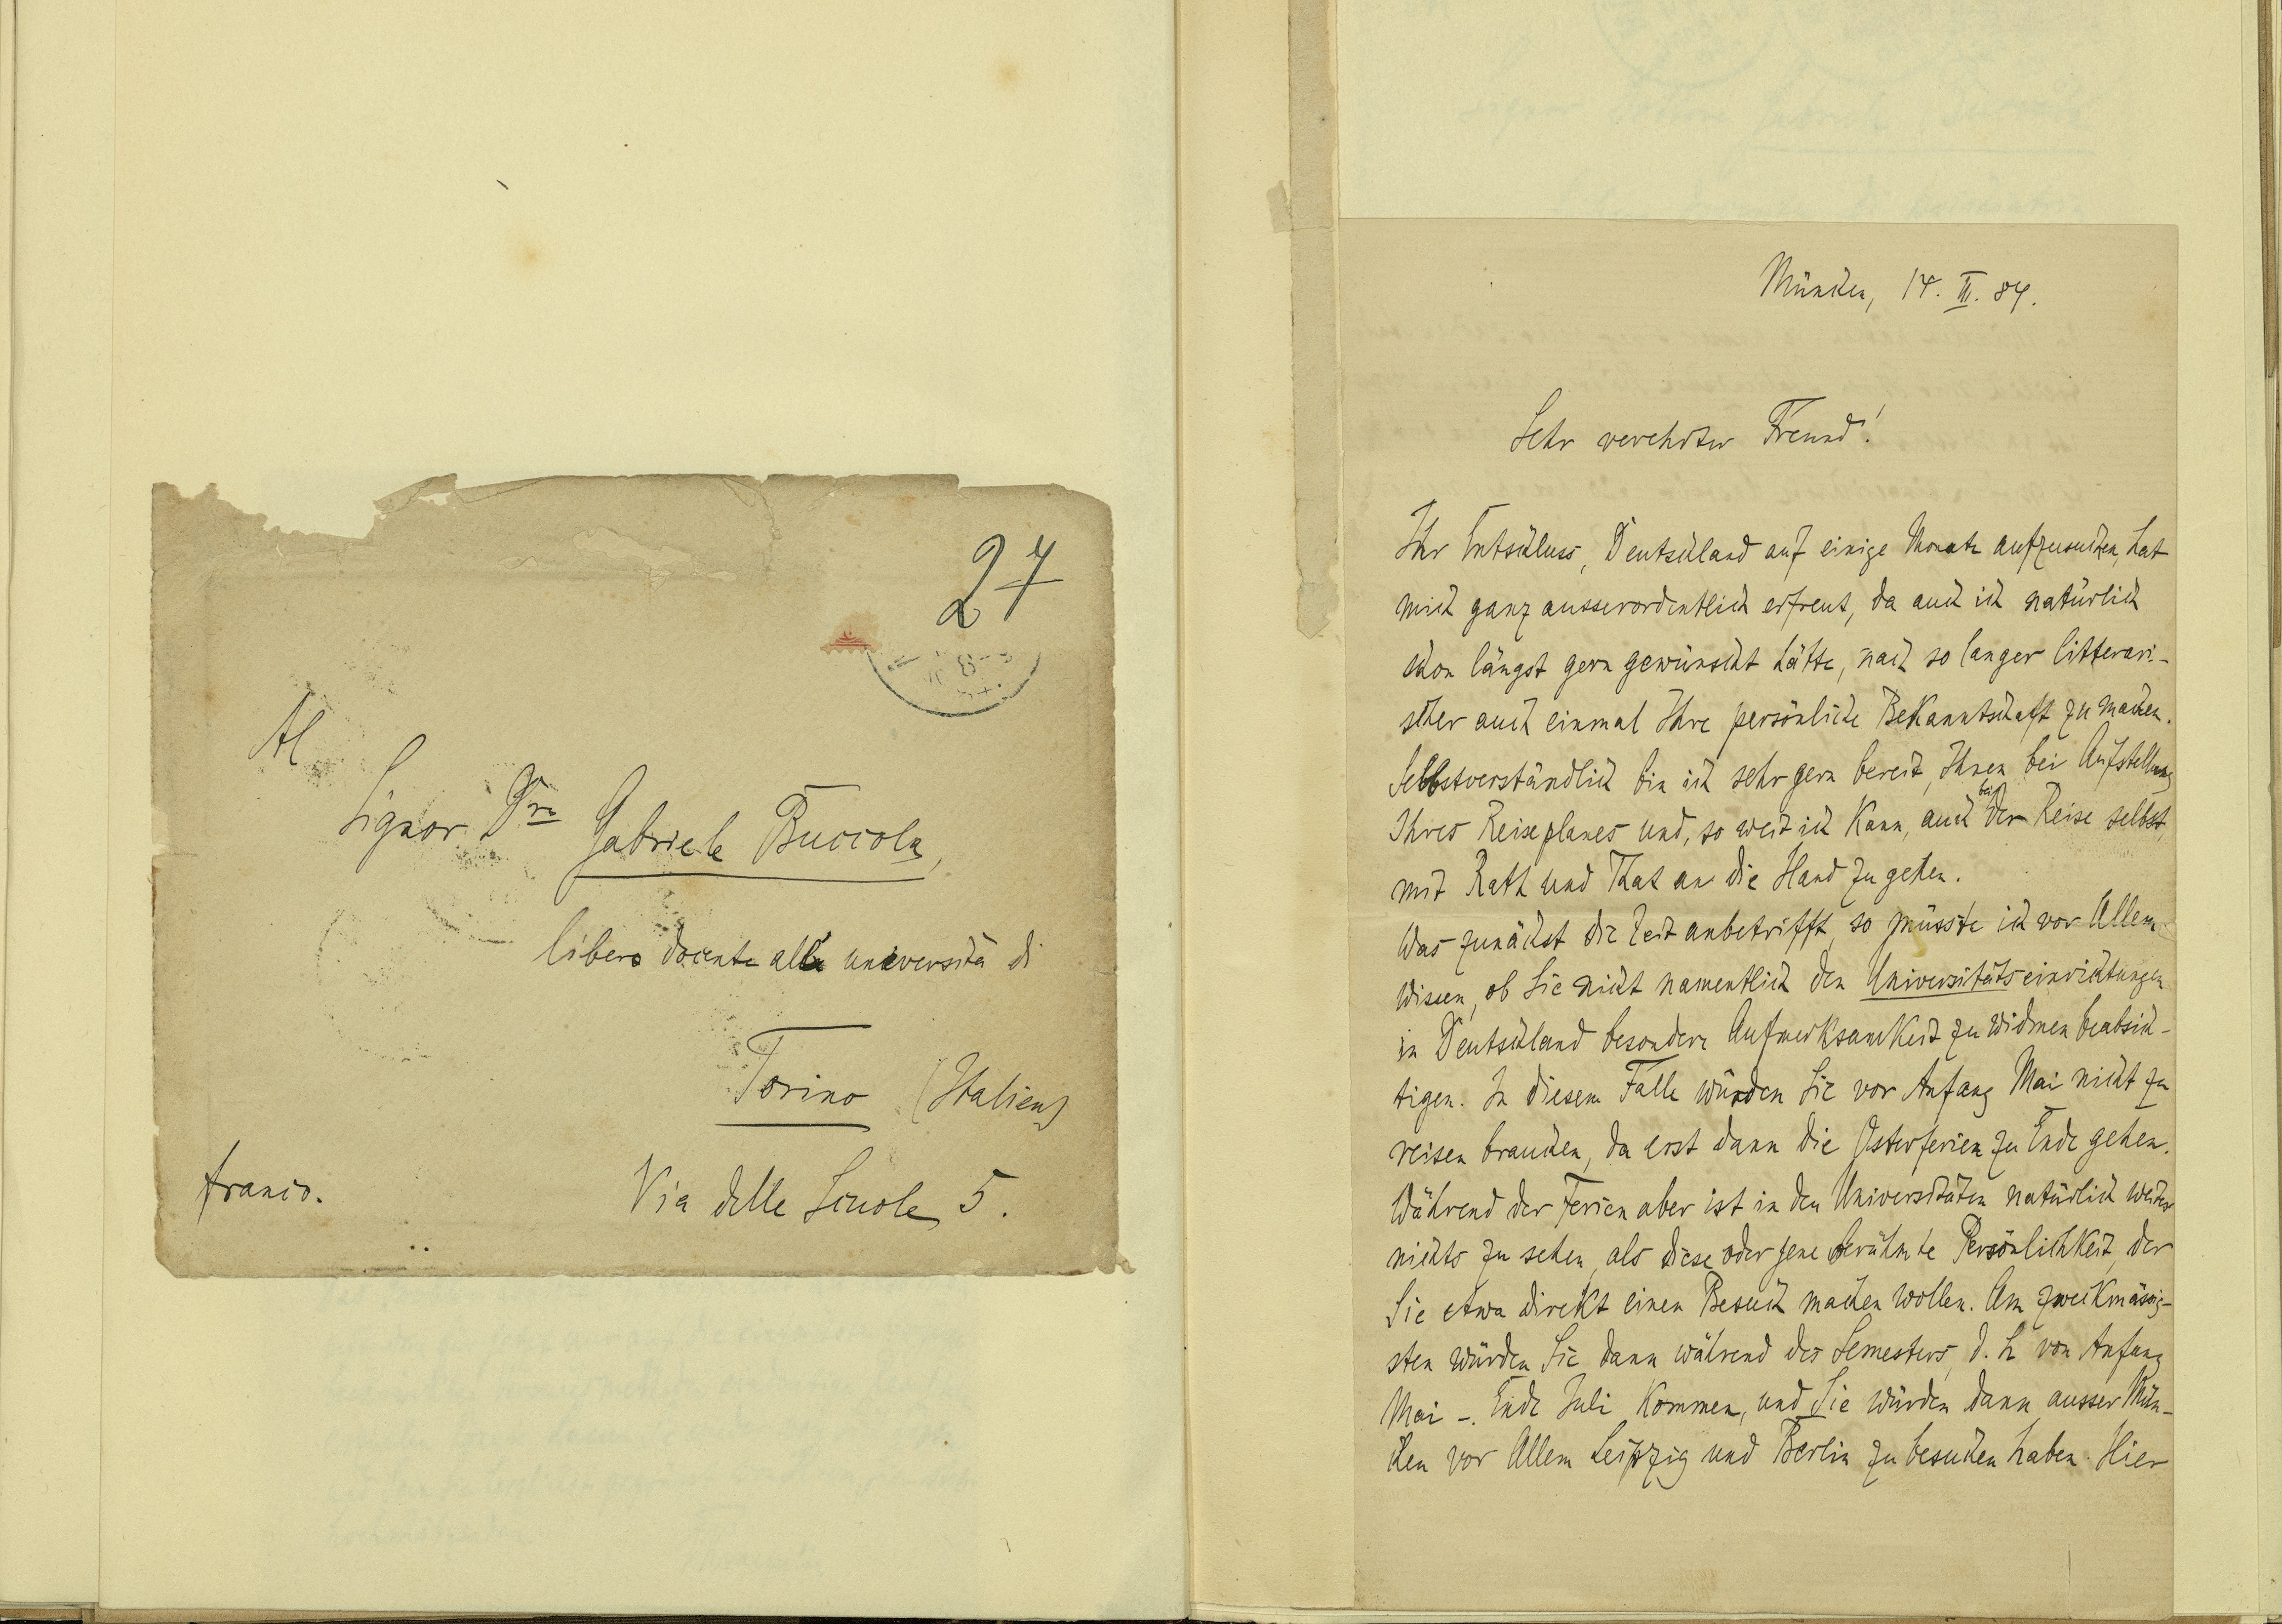 27
Al
Signor Dre Gabriele Buccola,
libero docente alla università di
Torino (Italien)
franco.
Via delle Scuole 5.
München, 14. III. 84.
Sehr verehrter Freund!
Ihr Entschluss, Deutschland auf einige Monate aufzusuchen, hat
mich ganz ausserordentlich erfreut, da auch ich natürlich
schon längst gern gewünscht hätte, nach so langer litterari-
scher auch einmal Ihre persönliche Bekanntschaft zu machen.
Selbstverständlich bin ich sehr gern bereit, Ihnen bei Aufstellung
Ihres Reiseplanes und, so weit ich kann, auch bei der Reise selbst,
mit Rath und That an die Hand zu gehen.
Was zunächst die Zeit anbetrifft, so müsste ich vor Allem
wissen, ob Sie nicht namentlich den Universitätseinrichtungen
in Deutschland besondere Aufmerksamkeit zu widmen beabsich-
tigen. In diesem Falle würden Sie vor Anfang Mai nicht zu
reisen brauchen, da erst dann die Osterferien zu Ende gehen.
Während der Ferien aber ist in den Universitäten natürlich weiter
nichts zu sehen, als diese oder jene berühmte Persönlichkeit, der
Sie etwa direkt einen Besuch machen wollen. Am zweckmässig-
sten würden Sie dann während des Semesters, d. h. von Anfang
Mai -. Ende Juli kommen, und Sie würden dann ausser Mün-
chen vor Allem Leipzig und Berlin zu besuchen haben. Hier